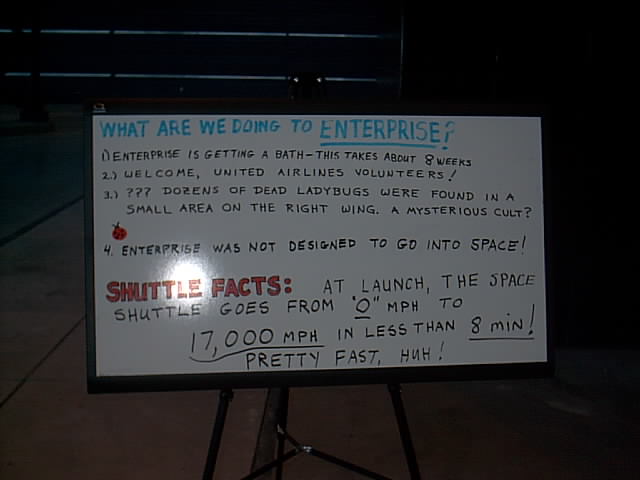 WHAT ARE WE DOING TO ENTERPRISE?
1) ENTERPRISE IS GETTING A BATH - THIS TAKES ABOUT 8 WEEKS
2.) WELCOME, UNITED AIRLINES VOLUNTEERS!
3.) ??? DOZENS OF DEAD LADYBUGS WERE FOUND IN A
SMALL AREA ON THE RIGHT WING. A MYSTERIOUS CULT?
4. ENTERPRISE WAS NOT DESIGNED TO GO INTO SPACE!
SHUTTLE FACTS: AT LAUNCH, THE SPACE
SHUTTLE GOES FROM "0" MPH TO
17,000 MPH IN LESS THAN 8 MIN!
PRETTY FAST, HUH!